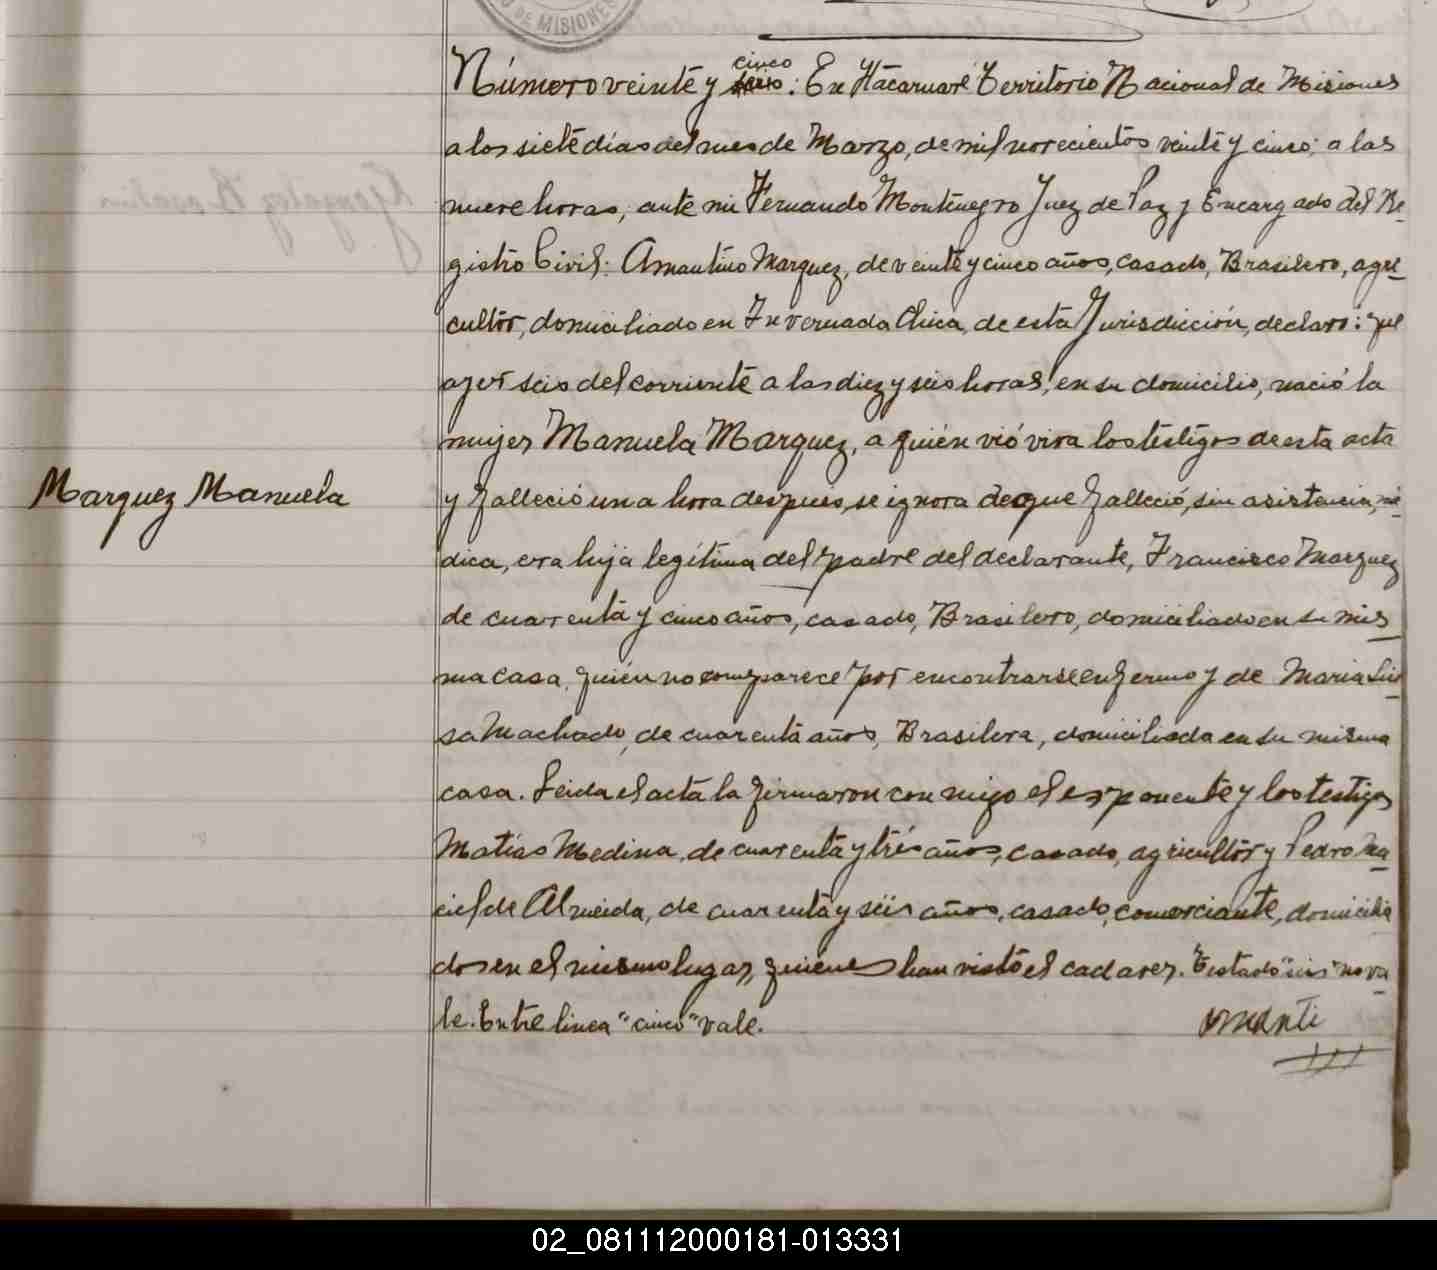 O DE MISIONES
cinco
Número veinte y seis: En Itacaruaré Territorio Nacional de Misiones
a los siete dias del mes de Marzo, de mil novecientos veinte y cinco; a las
nueve horas, ante mi Fernando Montenegro Juez de Paz y Encargado del Re-
gistro Civil: Amantino Marquez, de veinte y cinco años, casado, Brasilero, agri-
cultor, domiciliado en Invernada Chica, de esta Jurisdicción, declaro: que
ayer seis del corriente a las diez y seis horas, en su domicilio, nació la
mujer Manuela Marquez, a quién vió viva los testigos de esta acta
Marquez Manuela
y falleció una hora despues, se ignora de que falleció, sin asistencia, mé-
dica, era hija legítima del padre del declarante, Francisco Marquez
de cuarenta y cinco años, casado, Brasilero, domiciliado en su mis-
ma casa, quién no comparece por encontrarse enfermo y de Maria Lui-
sa Machado, de cuarenta años, Brasilera, domiciliada en su misma
casa. Leida el acta la firmaron con migo el esponente y los testigos
Matías Medina, de cuarenta y trés años, casado, agricultor y Pedro Ma-
ciel de Almeida, de cuarenta y seis años, casado, comerciante, domicilia-
dos en el mismo lugar, quienes han visto el cadaver. Testado "seis" no va-
le. Entre linea "cinco" vale.
Amanti
02_081112000181-013331